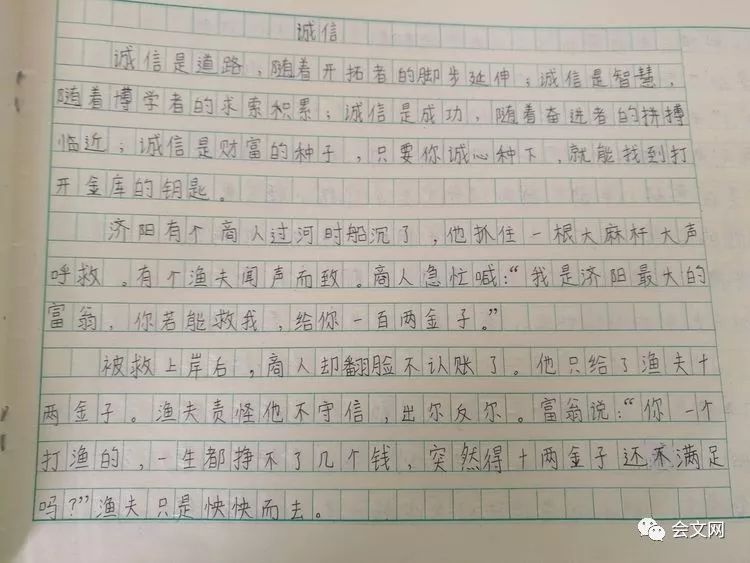 诚信
诚信是道路，随着开拓者的脚步延伸；诚信是智慧，
随着博学者的求索积累；诚信是成功，随着奋进者的拼搏
临近；诚信是财富的种子，只要你诚心种下，就能找到打
开金库的钥匙。
济阳有个商人过河时船沉了，他抓住一根大麻杆大声
呼救。有个渔夫闻声而致。商人急忙喊：“我是济阳最大的
富翁，你若能救我，给你一百两金子。”
被救上岸后，商人却翻脸不认账了。他只给了渔夫十
两金子。渔夫责怪他不守信，出尔反尔。富翁说：“你一个
打渔的，一生都挣不了几个钱，突然得十两金子还不满足
吗？”渔夫只是怏怏而去。
会文网